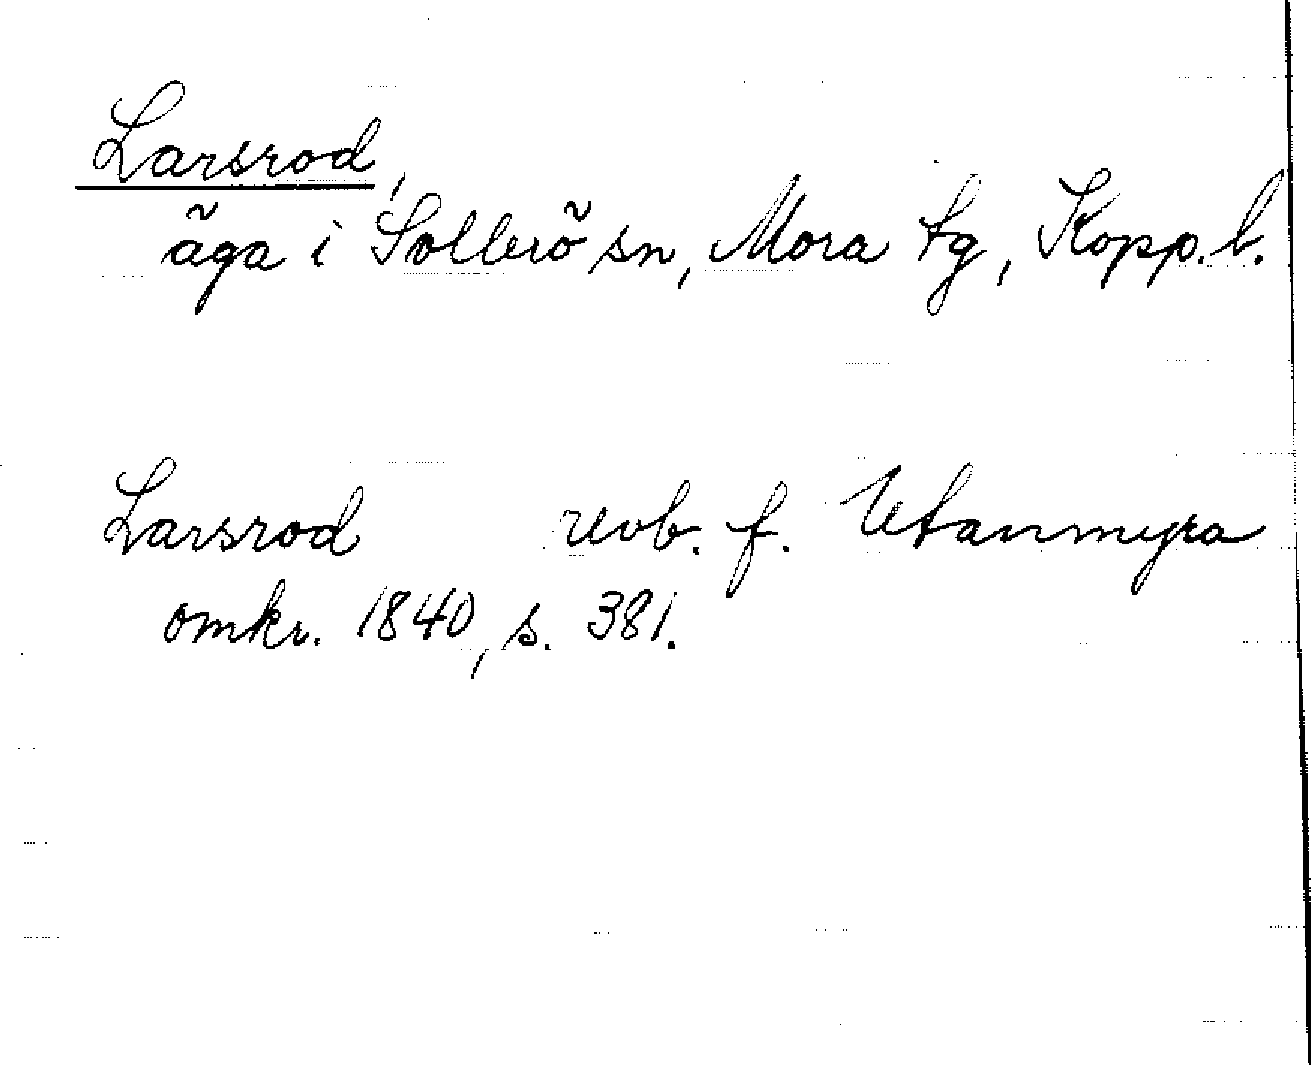 Larsrod,
äga i Sollerö sn, Mora tg, Kopp.b.
Larsrod Uvb. f. Utanmyra
omkr. 1840, s. 381.